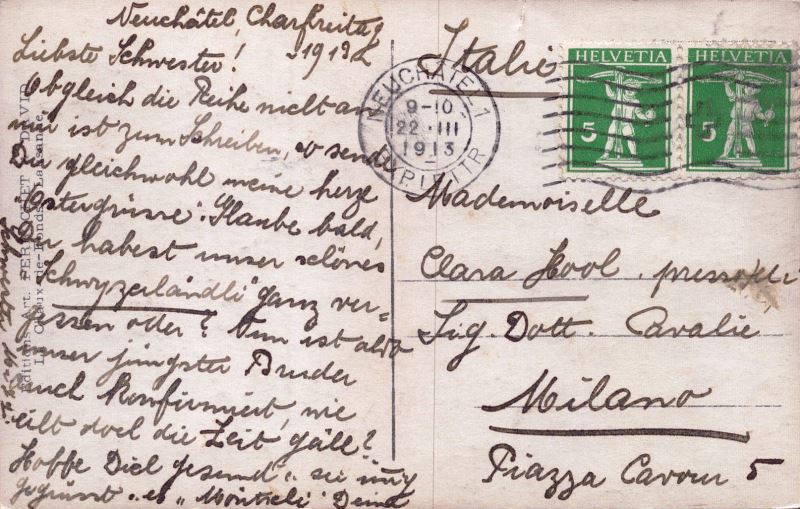 Neuchâtel, Charfreitag
1913
Liebste Schwester!
Obgleich die Reihe nicht an
mir ist zum Schreiben, so sende
Dir gleichwohl meine herzl.
Ostergrüsse. Glaube bald,
Du habest unser schönes
"Schwyzerländli" ganz ver=
gessen oder? Nun ist also
unser jüngster Bruder
auch konfirmiert, wie
eilt doch die Zeit gäll?
Hoffe Dich gesund, sei innig
gegrüsst Deine
Schwester
Edition d'Art. PERROCHET & DAVID
La Chaux-de-Fonds, Lausanne
Italie
NEUCHATEL 1
9-10
22 III
1913
EXP. LETTR
HELVETIA
5
HELVETIA
5
Mademoiselle
Clara Hool, presso il
Sig. Dott. Cavalie
Milano
Piazza Cavour 5